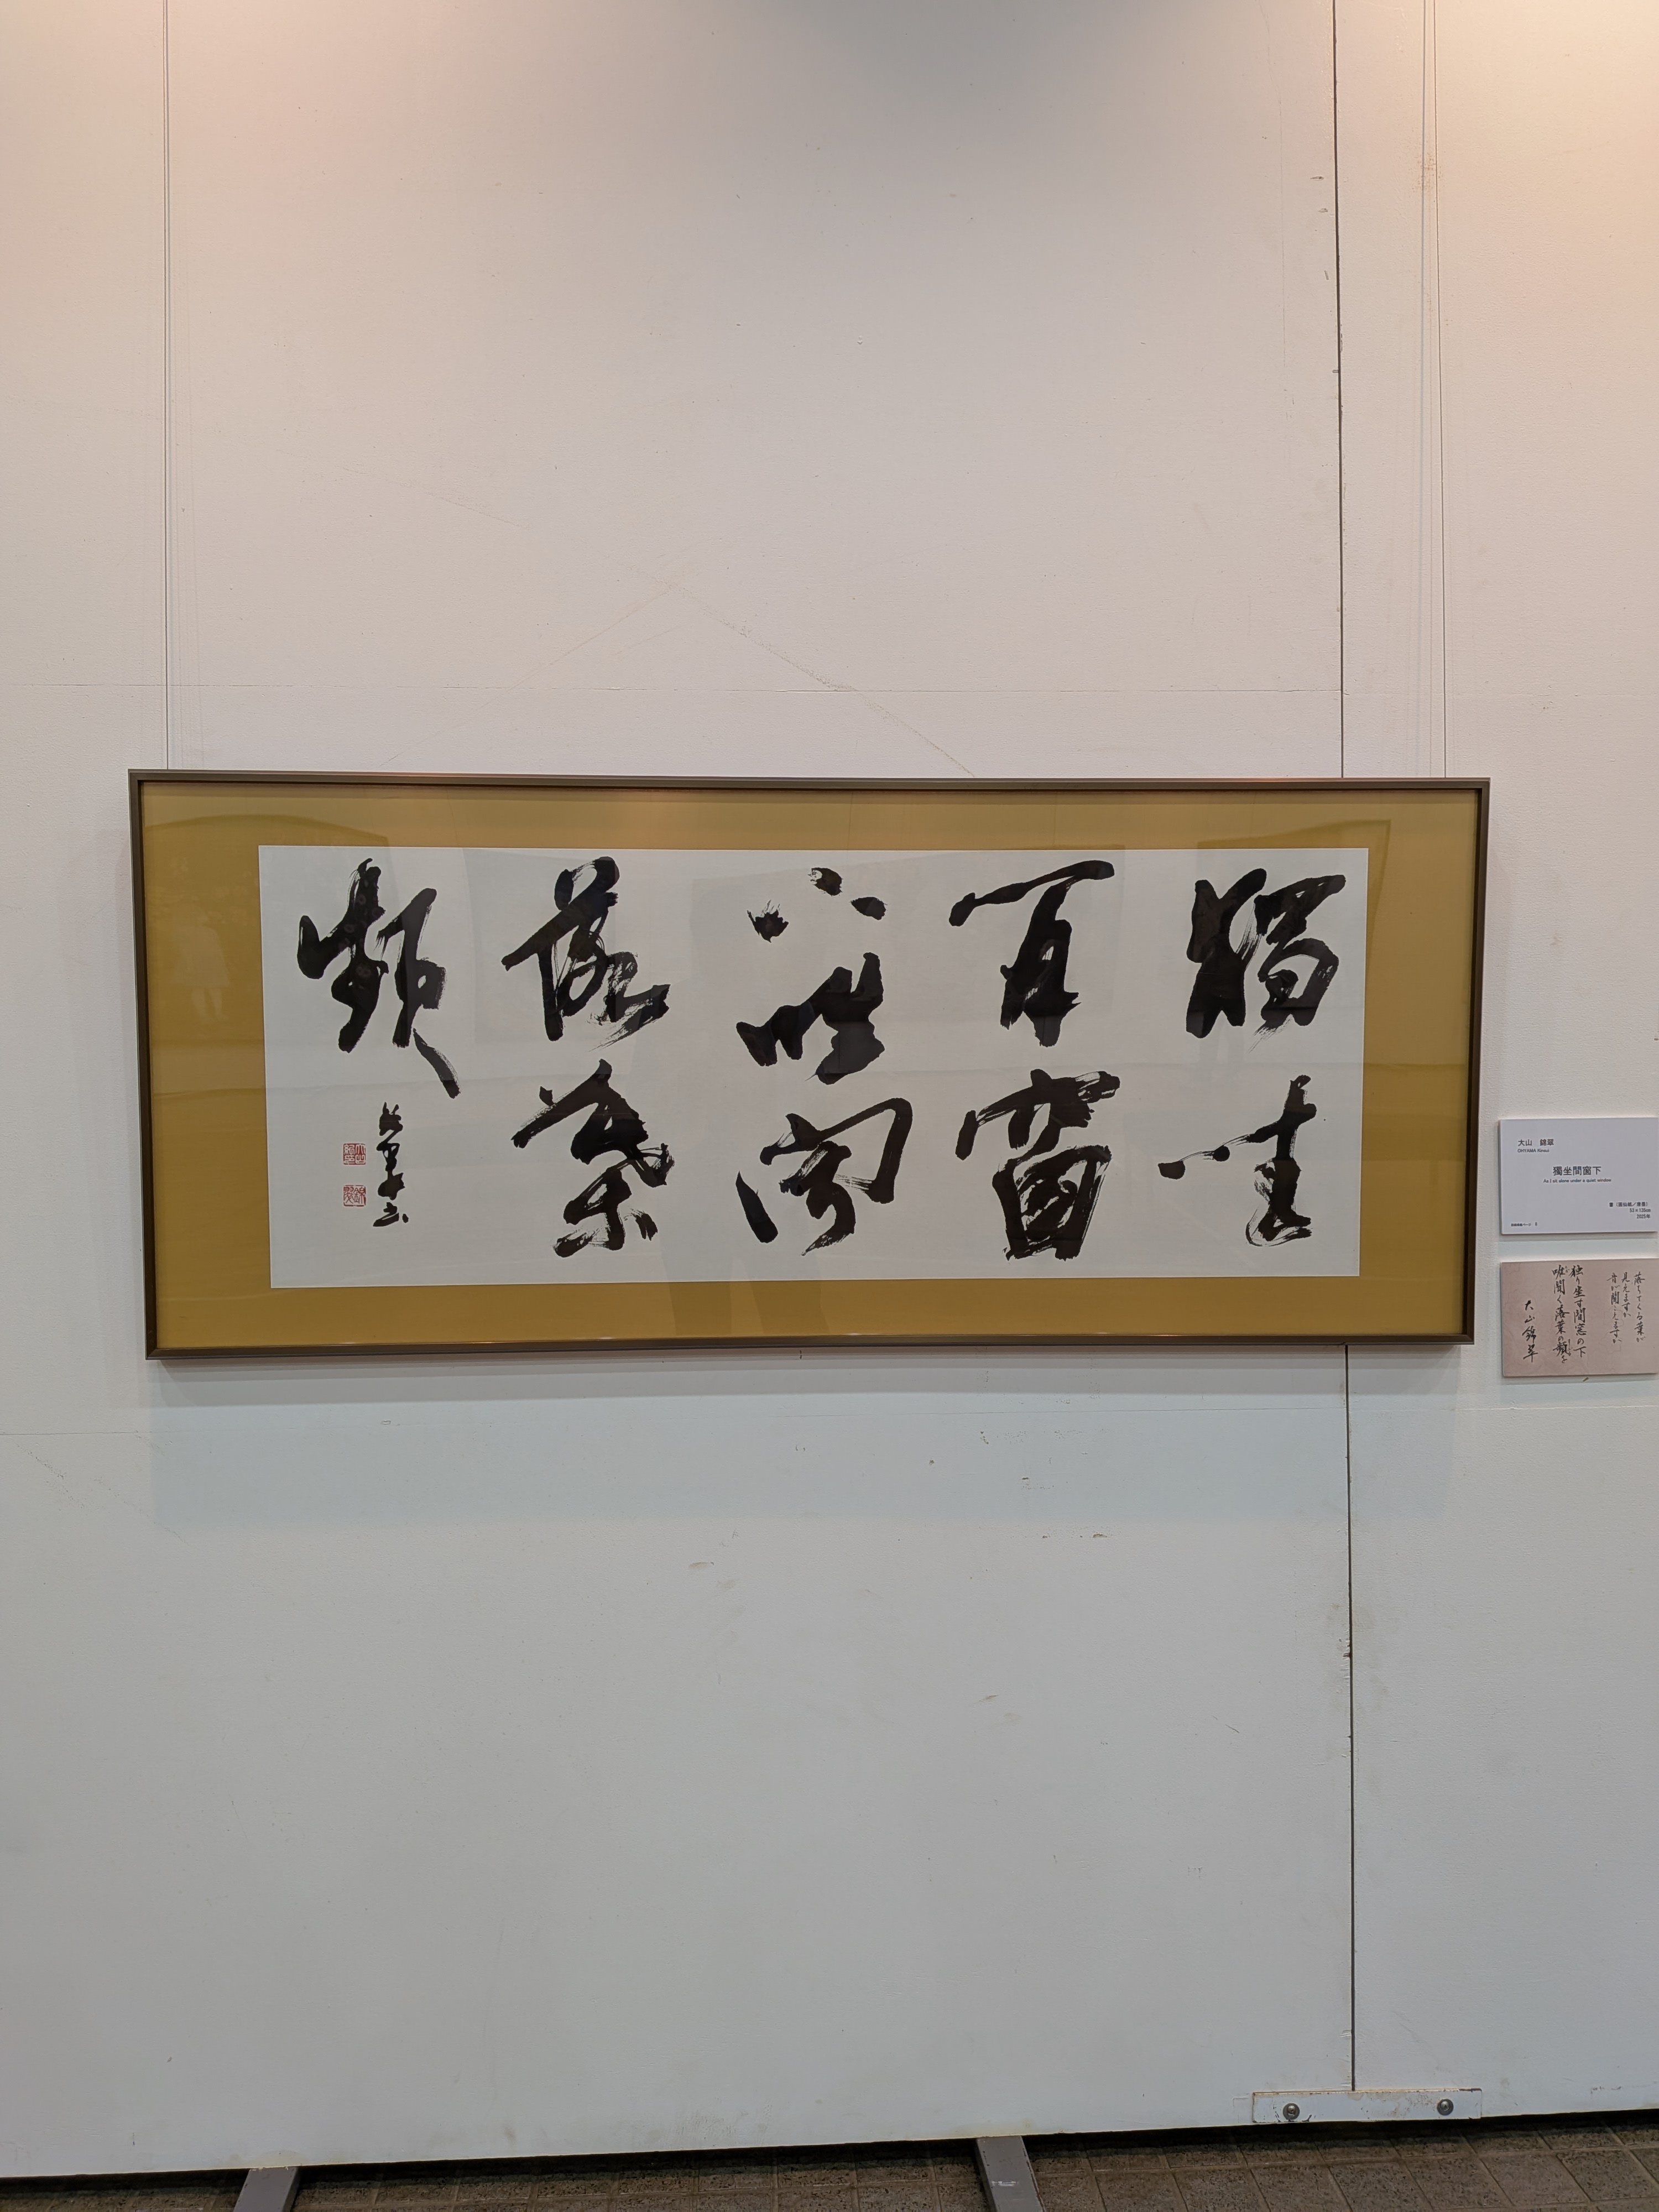 獨坐
間窗
下唯聞
落葉
頻
錦翠書
大山 錦翠
OHYAMA Kinsui
獨坐間窗下
As I sit alone under a quiet window
2025年
落ちてくる葉が
見えますか
音が聞こえますか
独り坐す間窓の下
唯聞く落葉の頻を
大山錦翠